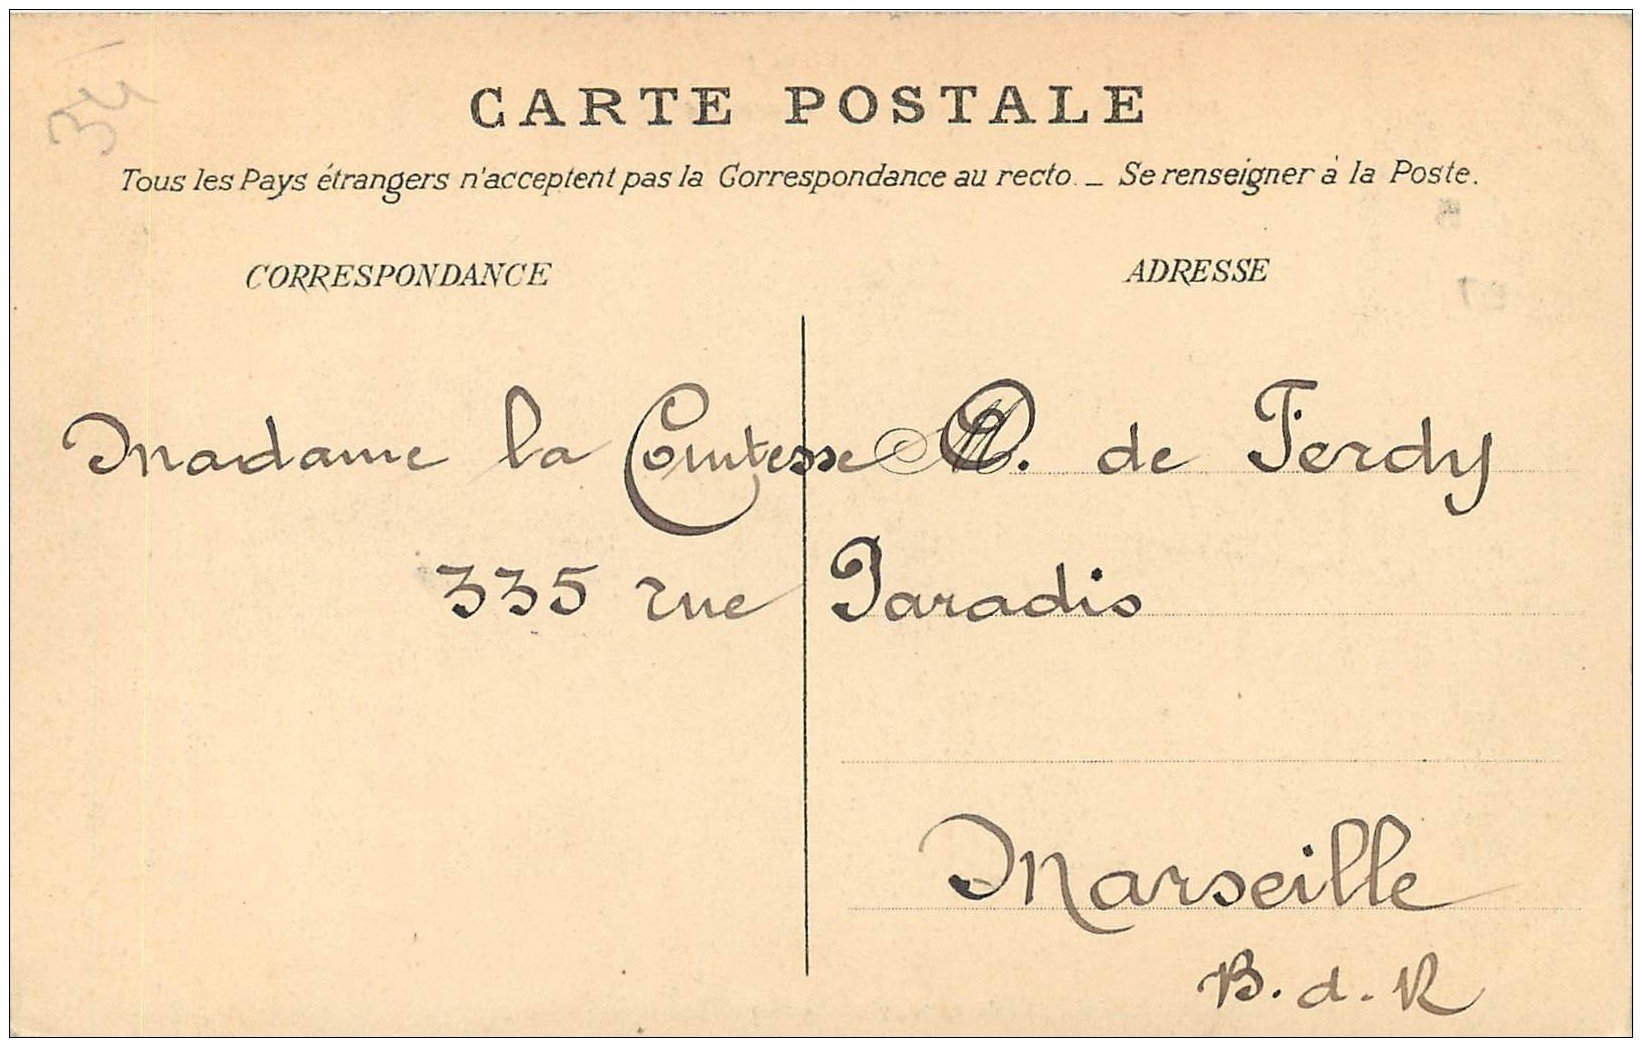 34
CARTE POSTALE
Tous les Pays étrangers n'acceptent pas la Correspondance au recto. _ Se renseigner à la Poste.
CORRESPONDANCE
ADRESSE
Madame la Comtesse de Ferdy
335 rue Paradis
Marseille
B. d. R